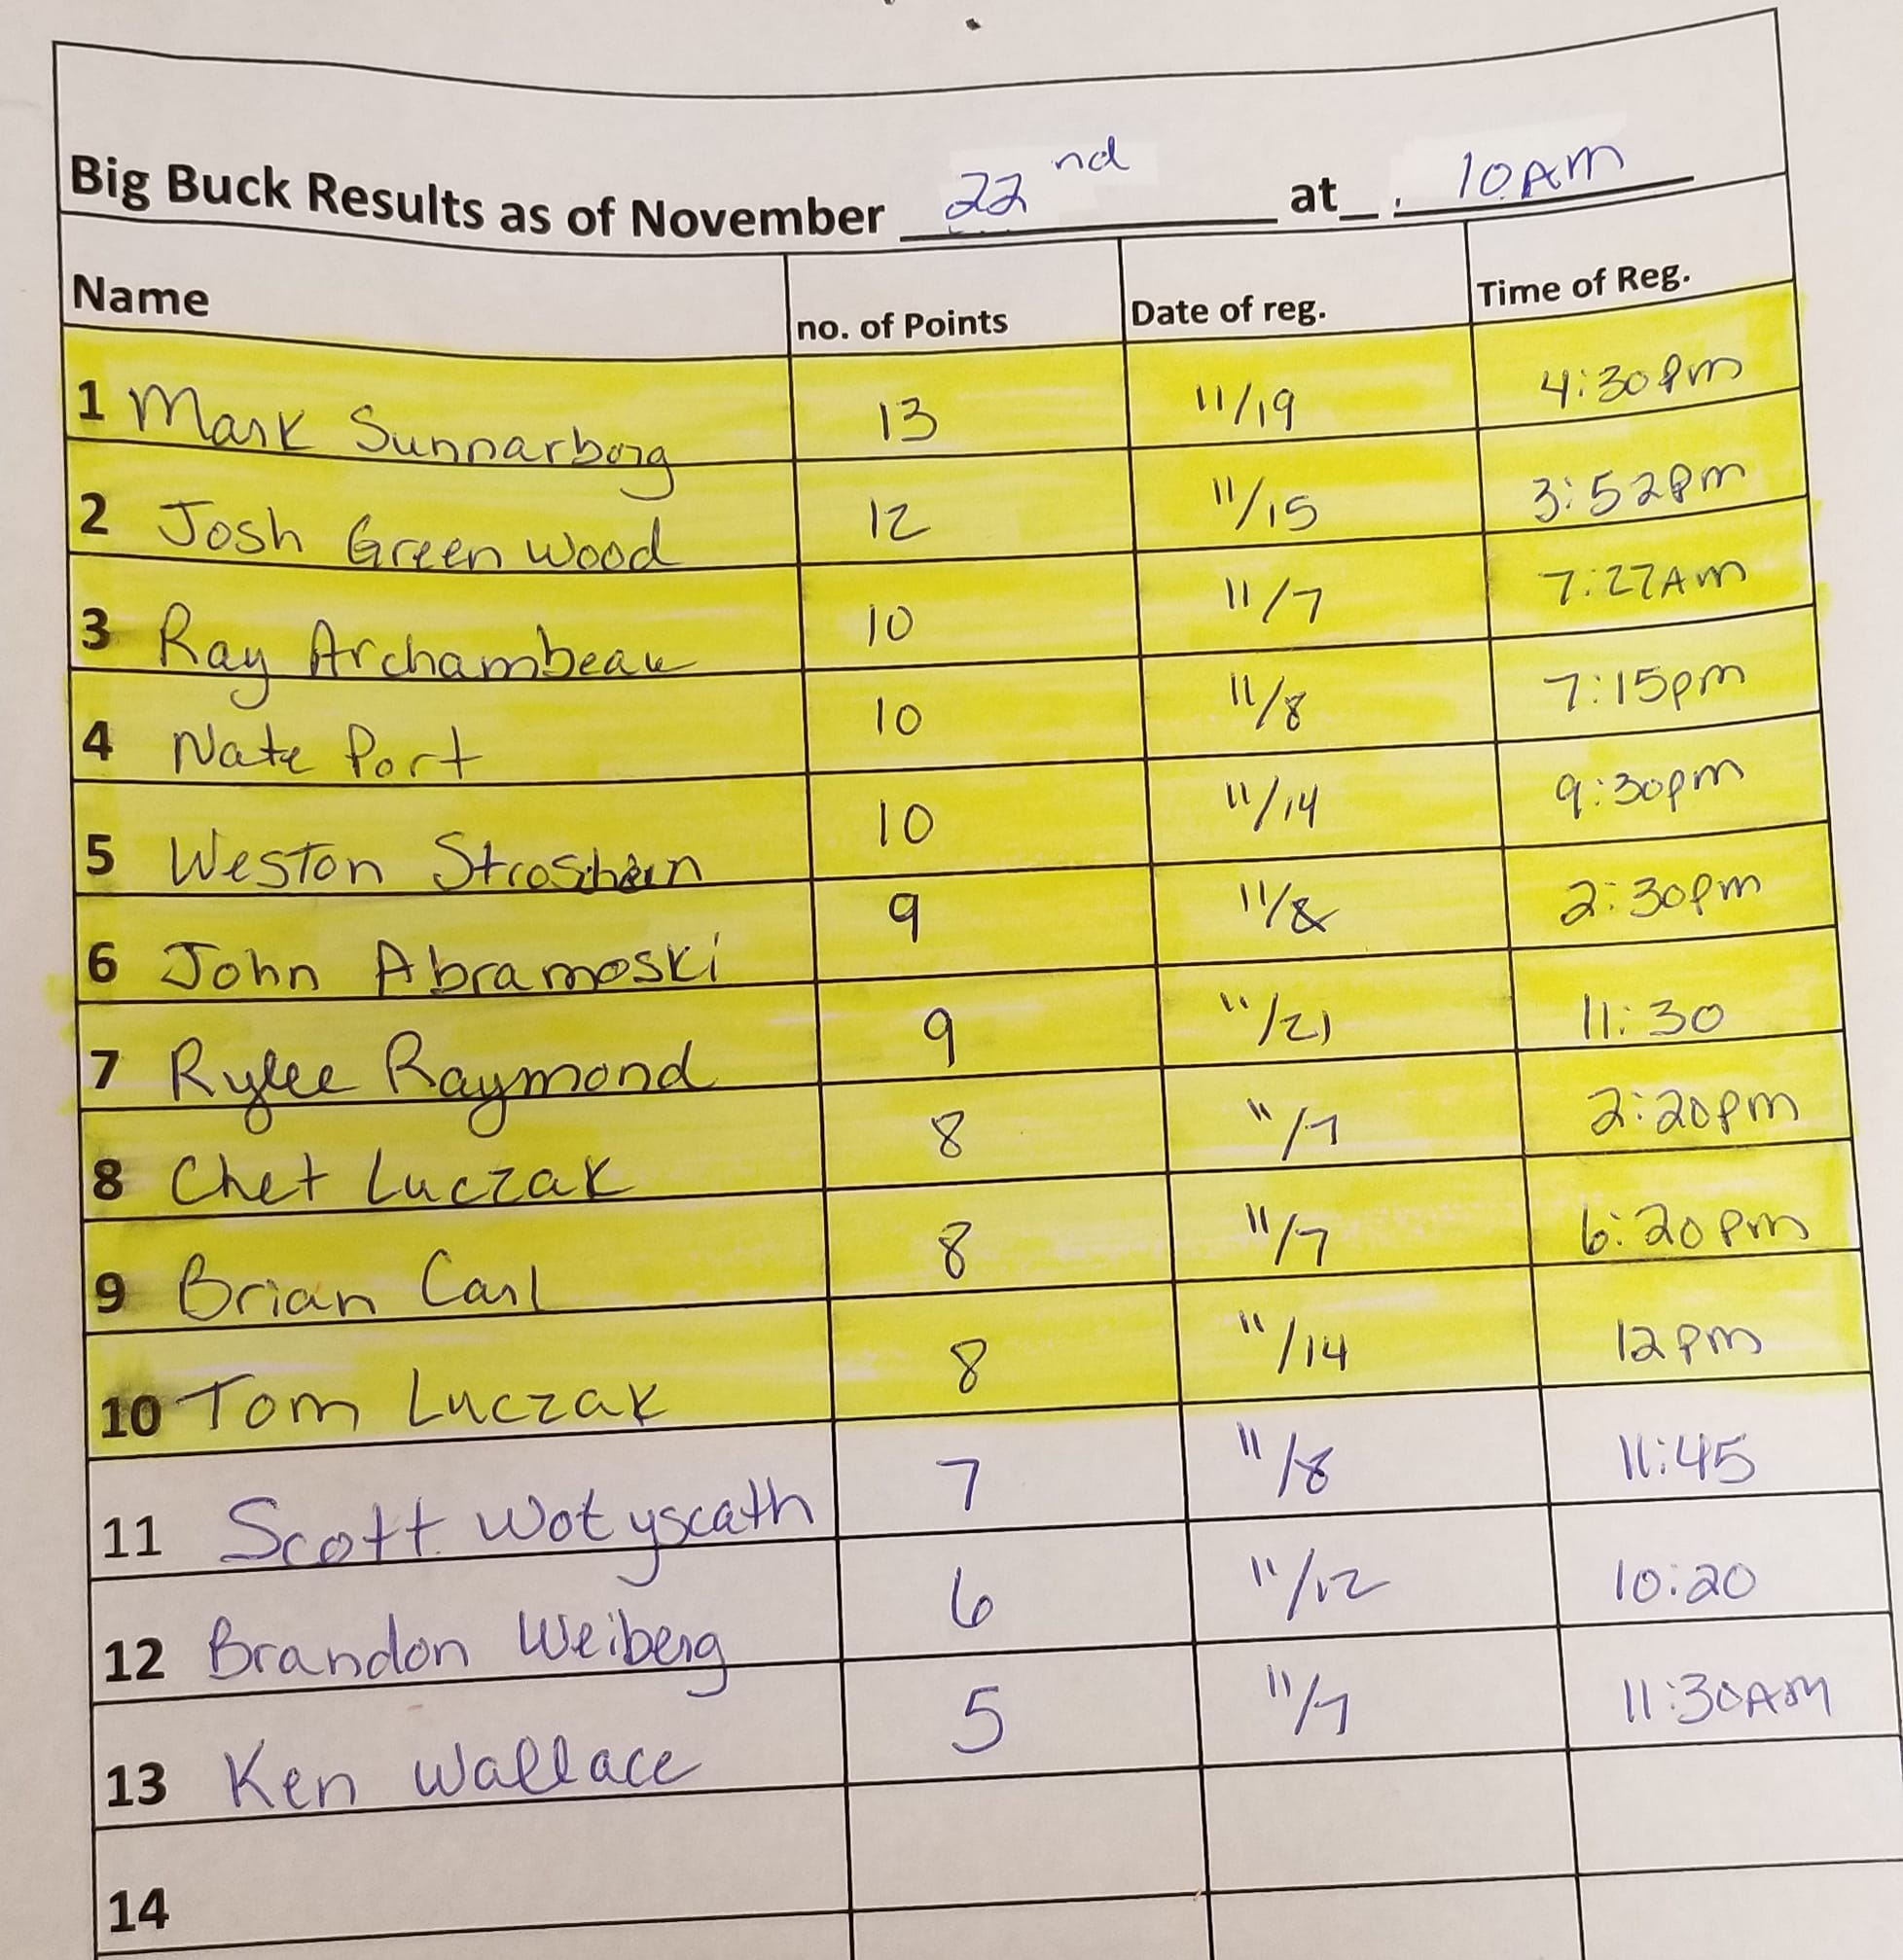 Big Buck Results as of November 22nd at 10AM
Name no. of Points Date of reg. Time of Reg.
1 Mark Sunnarborg 13 11/19 4:30pm
2 Josh Greenwood 12 11/15 3:52pm
3 Ray Archambeau 10 11/7 7:27AM
4 Nate Port 10 11/8 7:15pm
5 Weston 10 11/14 9:30pm
6 John Abramoski 9 11/8 2:30pm
7 Rylee Raymond 9 11/21 11:30
8 Chet Luczak 8 11/7 2:20pm
9 Brian Carl 8 11/7 6:20pm
10 Tom Luczak 8 11/14 12pm
11 Scott Wotyscath 7 11/8 11:45
12 Brandon Weiberg 6 11/12 10:20
13 Ken Wallace 5 11/7 11:30AM
14